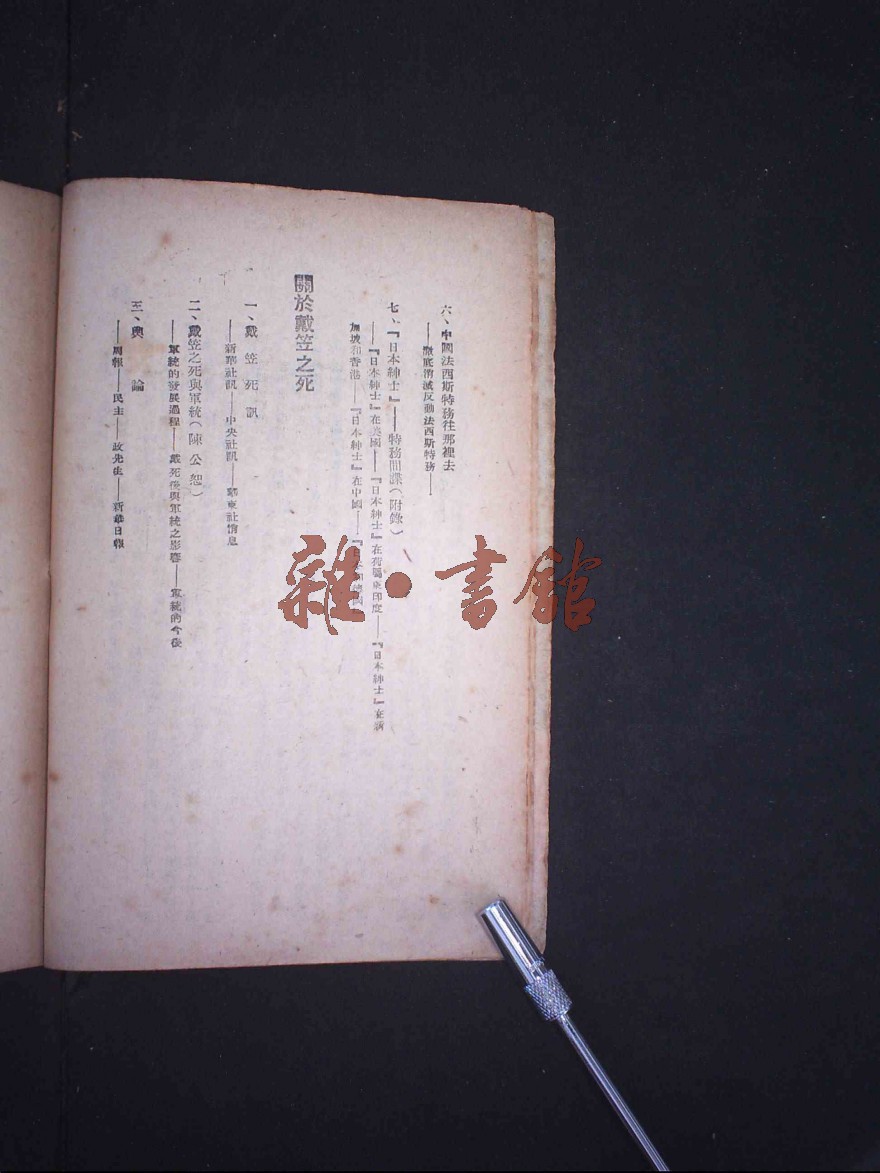 六、中國法西斯特務往那裡去
——徹底消滅反動法西斯特務——
七、『日本紳士』——特務間諜(附錄)
——『日本紳士』在美國——『日本紳士』在荷屬東印度——『日本紳士』在新
加坡和香港——『日本紳士』在中國——
關於戴笠之死
一、戴笠死訊
——新華社訊——中央社訊——華東社消息
二、戴笠之死與軍統(陳公恕)
——軍統的發展過程——戴死後與軍統之影響——軍統的今後
三、輿論
——周報——民主——政先生——新華日報
雜·書館